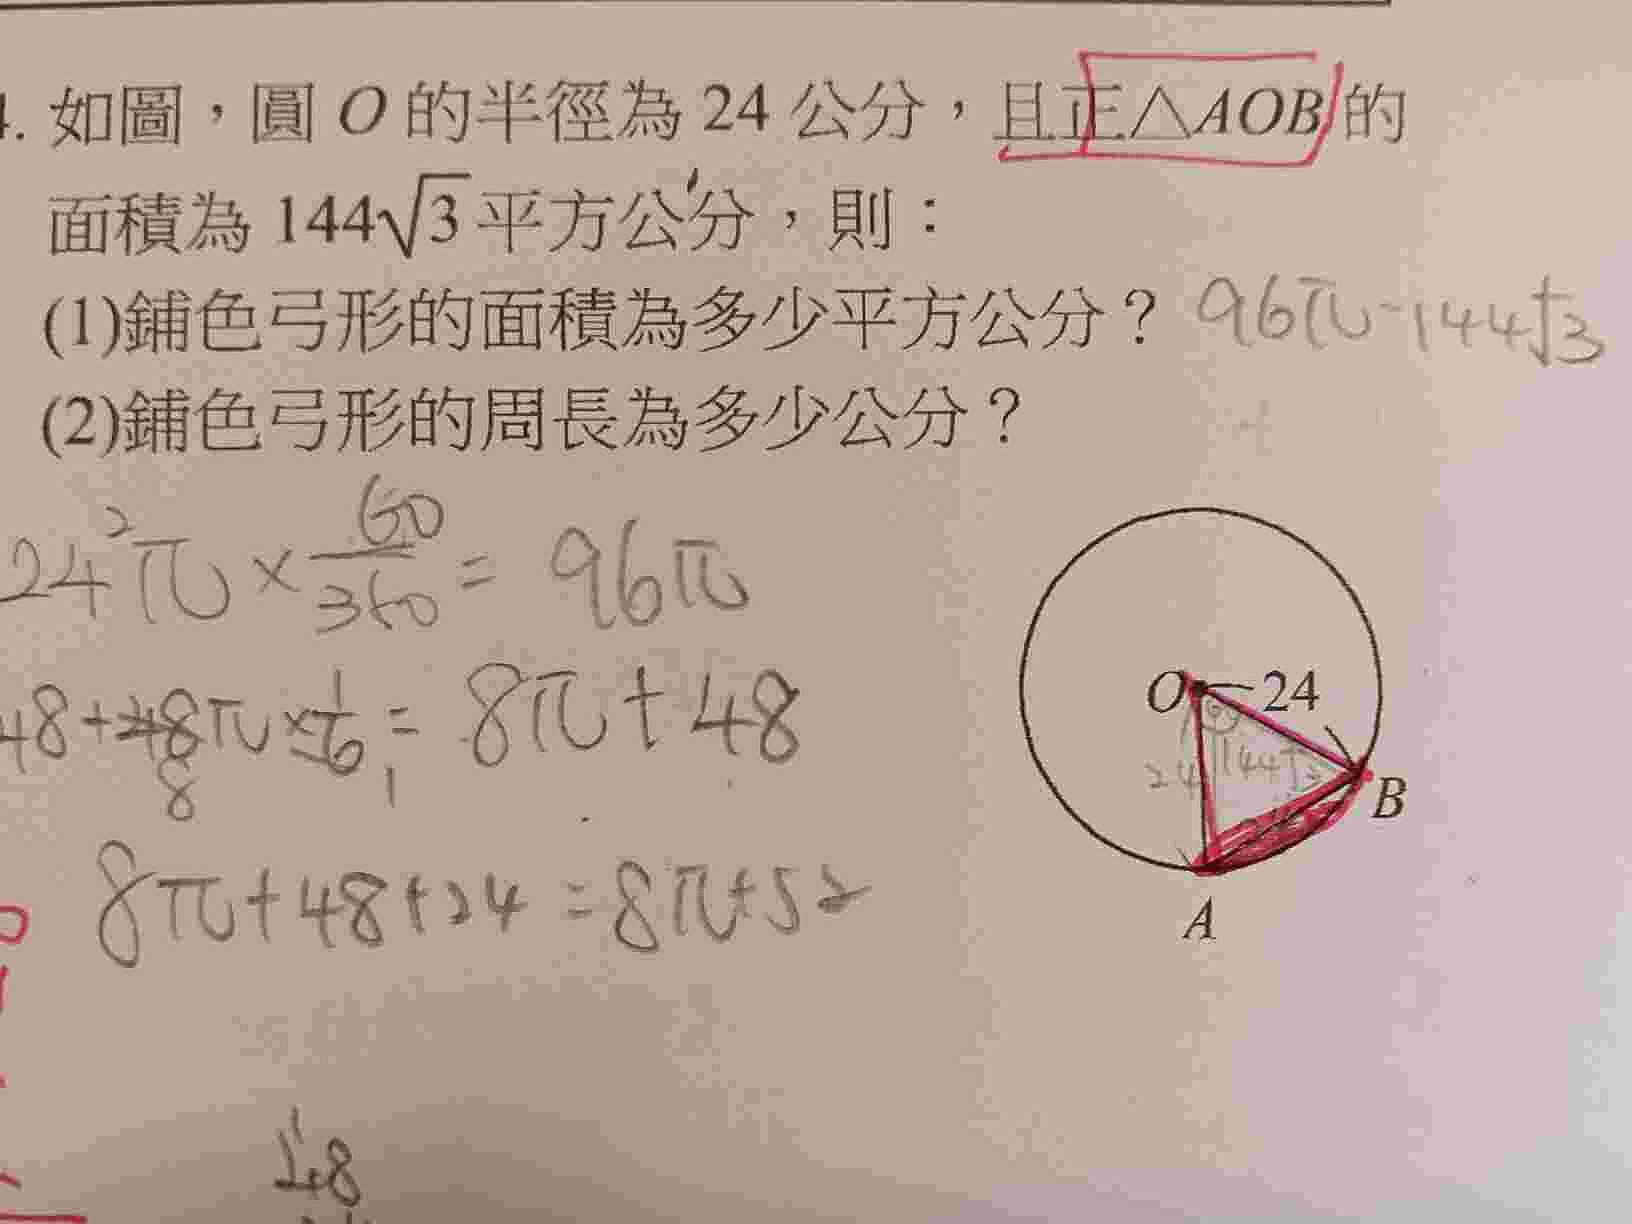 4. 如圖，圓 O 的半徑為 24 公分，且正△AOB 的
面積為 144√3 平方公分，則：
(1)鋪色弓形的面積為多少平方公分？ 96π-144√3
(2)鋪色弓形的周長為多少公分？
24²π × 60/360 = 96π
48+48π×1/6 = 8π+48
8
8π+48+24 = 8π+52
O 24
24 144√3
B
A
48